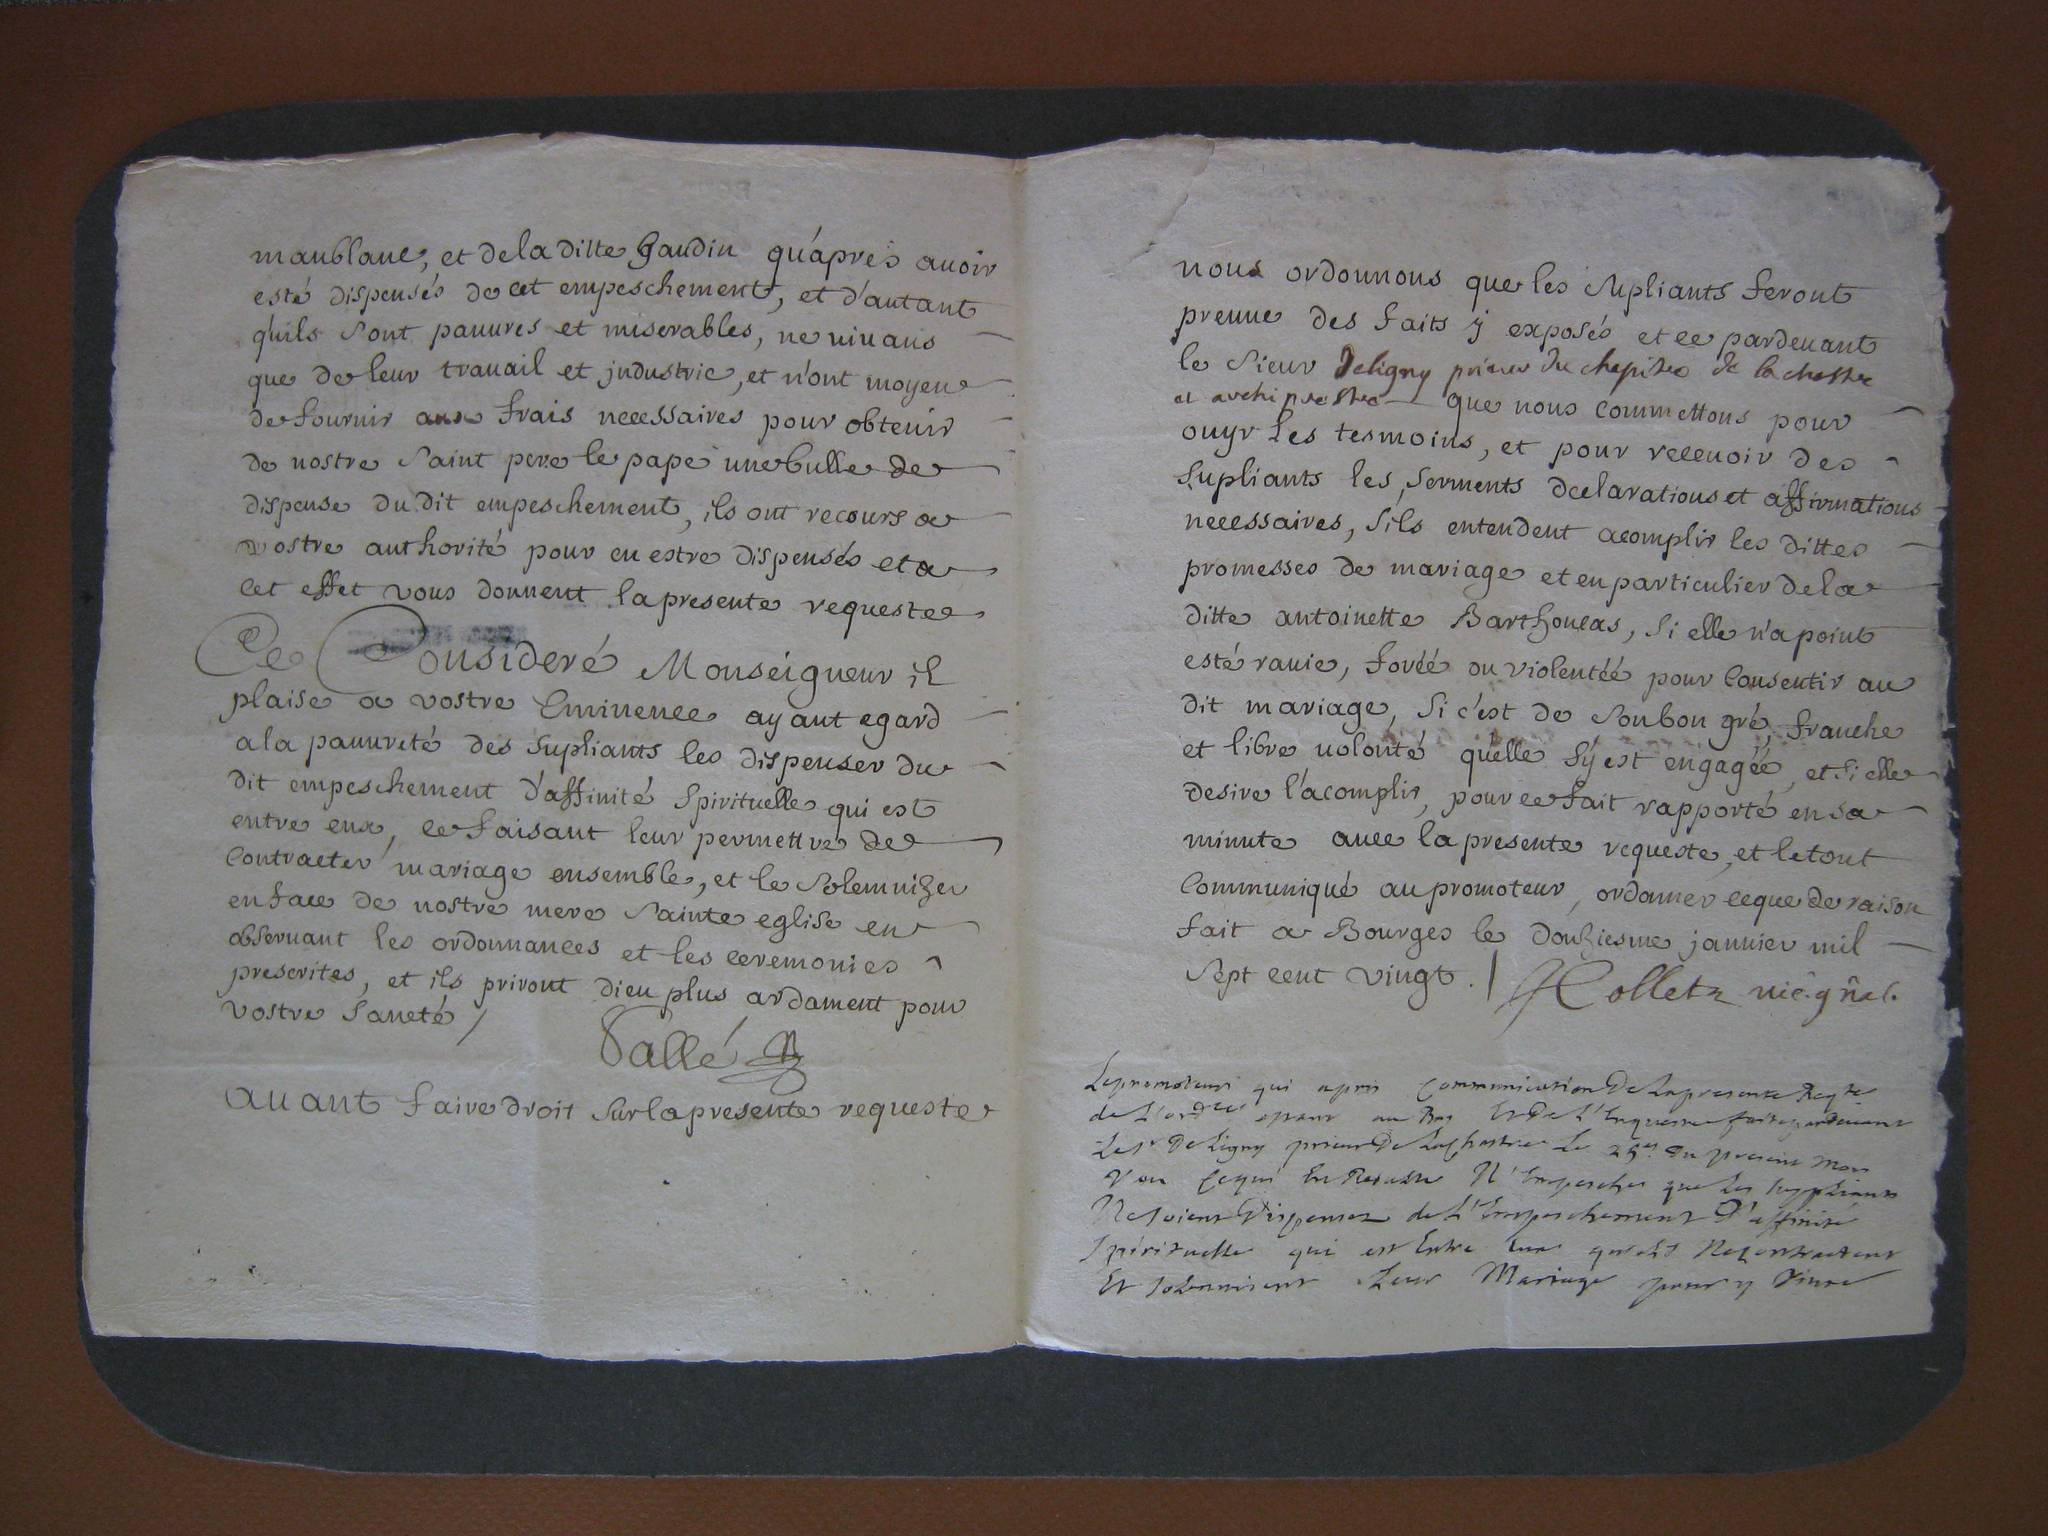 maublanc, et de la ditte Gaudin qu'aprés avoir
esté dispensés de cet empeschement, et d'autant
quils sont pauures et miserables, ne viuans
que de leur trauail et jndustrie, et n'ont moyen
de fournir aux frais necessaires pour obtenir
de nostre saint pere le pape une bulle de
dispense du dit empeschement, ils ont recours a
vostre authorité pour en estre dispensés et a
cet effet vous donnent la presente requeste
Ce Consideré Monseigneur il
plaise a vostre Eminence ayant egard
a la pauureté des supliants les dispenser du
dit empeschement d'affinité spirituelle qui est
entre eux, ce faisant leur permettre de
contracter mariage ensemble, et le solemnizer
en face de nostre mere sainte eglise en
obseruant les ordonnances et les ceremonies
prescrites, et ils priront dieu plus ardament pour
vostre santé /
Vallé
auant faire droit sur la presente requeste
nous ordonnons que les supliants feront
preuue des faits ÿ exposés et ce pardeuant
le sieur Deligny prieur du chapitre de la chastre
et archiprestre que nous commettons pour
ouyr les tesmoins, et pour receuoir des
supliants les serments declarations et affirmations
necessaires, sils entendent acomplir les dittes
promesses de mariage et en particulier de la
ditte antoinette Barthoucas, si elle n'a point
esté rauie, forcéé ou violentéé pour consentir au
dit mariage, si c'est de son bon gré, franche
et libre uolonté quelle s'ÿ est engagéé, et si elle
desire l'acomplir, pour ce fait rapporté en sa
minute auec la presente requeste, et le tout
communiqué au promoteur, ordonner ce que de raison
fait a Bourges le douziesme januier mil
sept cent vingt. / Colletz uic. gñal.
Le promoteur qui apris communication De la presente Reqte
de L'ordce estant au Bas Et De L'Enqueste faite pardeuant
Le Sr De Ligny prieur De La Chastre Le 25e Du present mois
Veu Ce qui En Resulte N'Empesche que Les suppliants
Ne soient Dispensez de L'Empeschement D'affinité
spirituelle qui est Entre Eux quils Ne Contractent
Et solemnisent Leur Mariage pour y Viure